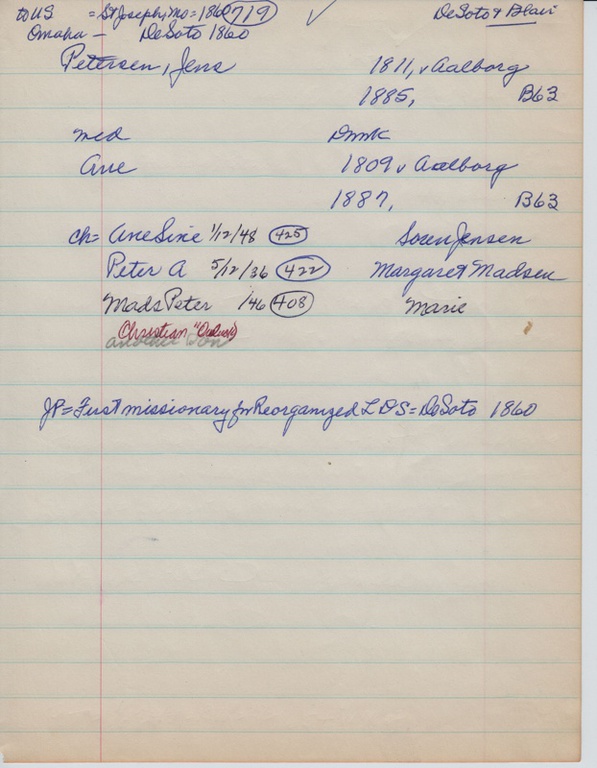 to US = St Joseph, Mo = 1860 719 ✓ DeSoto & Blair
Omaha - DeSoto 1860
Petersen, Jens 1811, v Aalborg
1885, B63
med Dmk
Ane 1809 v Aalborg
1887, B63
ch = Ane Sine 1/12/48 425 Soren Jensen
Peter A 5/12/36 422 Margaret Madsen
Mads Peter /46 408 Marie
Christian
another son
JP = First missionary for Reorganized LDS = DeSoto 1860